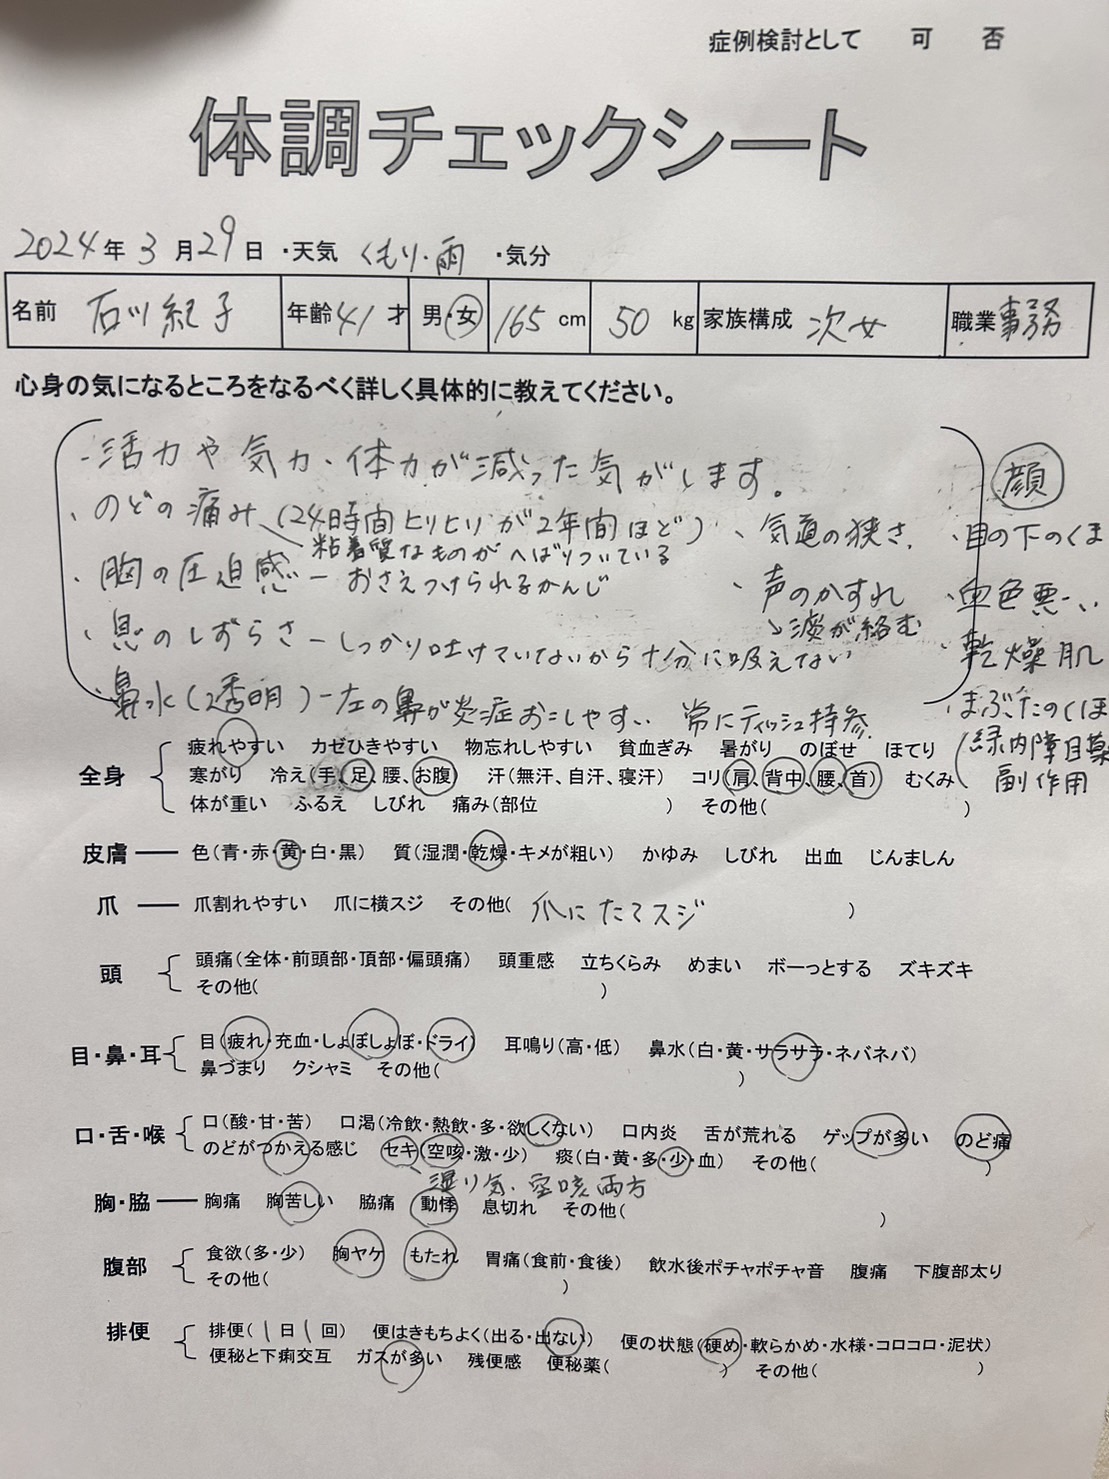 症例検討として 可 否
体調チェックシート
2024年 3月29日 ・天気 くもり・雨 ・気分
名前 石川紀子 年齢41才 男・女 165cm 50kg 家族構成 次女 職業 事務
心身の気になるところをなるべく詳しく具体的に教えてください。
・活力や気力、体力が減った気がします。
・のどの痛み(24時間ヒリヒリが2年間ほど)
粘着質なものがへばりついている
・胸の圧迫感ー おさえつけられるかんじ
・息のしずらさー しっかり吐けていないから十分に吸えない
・鼻水(透明)ー左の鼻が炎症おこしやすい 常にティッシュ持参
・気道の狭さ
・声のかすれ
→痰が絡む
顔
・目の下のくま
・血色悪い
・乾燥肌
・まぶたのくぼ
(緑内障目薬
副作用
全身 疲れやすい カゼひきやすい 物忘れしやすい 貧血ぎみ 暑がり のぼせ ほてり
寒がり 冷え(手、足、腰、お腹) 汗(無汗、自汗、寝汗) コリ(肩、背中、腰、首) むくみ
体が重い ふるえ しびれ 痛み(部位 ) その他( )
皮膚 ― 色(青・赤・黄・白・黒) 質(湿潤・乾燥・キメが粗い) かゆみ しびれ 出血 じんましん
爪 ― 爪割れやすい 爪に横スジ その他( 爪にたてスジ )
頭 頭痛(全体・前頭部・頂部・偏頭痛) 頭重感 立ちくらみ めまい ボーっとする ズキズキ
その他( )
目・鼻・耳 目(疲れ・充血・しょぼしょぼ・ドライ) 耳鳴り(高・低) 鼻水(白・黄・サラサラ・ネバネバ)
鼻づまり クシャミ その他( )
口・舌・喉 口(酸・甘・苦) 口渇(冷飲・熱飲・多・欲しくない) 口内炎 舌が荒れる ゲップが多い のど痛
のどがつかえる感じ セキ(空咳・激・少) 痰(白・黄・多・少・血) その他( )
湿り気、空咳両方
胸・脇 ― 胸痛 胸苦しい 脇痛 動悸 息切れ その他( )
腹部 食欲(多・少) 胸ヤケ もたれ 胃痛(食前・食後) 飲水後ポチャポチャ音 腹痛 下腹部太り
その他( )
排便 排便(1日1回) 便はきもちよく(出る・出ない) 便の状態(硬め・軟らかめ・水様・コロコロ・泥状)
便秘と下痢交互 ガスが多い 残便感 便秘薬( ) その他( )